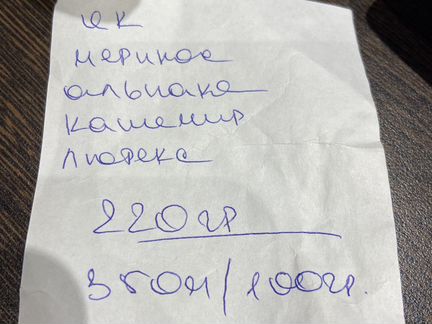 ЦК
меринос
альпака
кашемир
люрекс
220гр
350м/100гр.